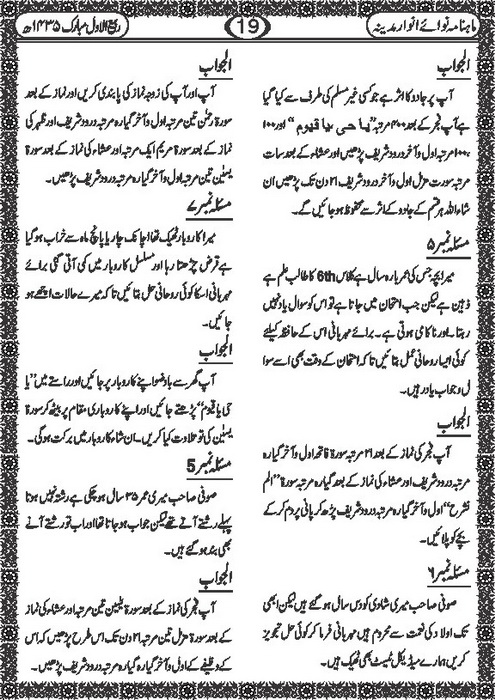 ماہنامہ نوائے انوار مدینہ
19
ربیع الاول مبارک ۱۴۳۵ھ
الجواب
آپ پر جادو کا اثر ہے جو کسی غیر مسلم کی طرف سے کیا گیا
ہے آپ فجر کے بعد ۴۰۰ مرتبہ ”یا حی یا قیوم“ اور ۱۰۰
،۱۰۰ مرتبہ اول و آخر درود شریف پڑھیں اور عشاء کے بعد سات
مرتبہ سورت مزمل اول و آخر درود شریف ۲۱ دن تک پڑھیں ان
شاء اللہ ہر قسم کے جادو کے اثر سے محفوظ ہو جائیں گے۔
مسئلہ نمبر ۵
میرا بچہ جس کی عمر بارہ سال ہے کلاس 6th کا طالب علم ہے
ذہین ہے لیکن جب امتحان میں جاتا ہے تو اس کو سوال یاد نہیں
رہتا۔ اور ناکامی ہوتی ہے۔ برائے مہربانی اس کے حافظہ کیلئے
کوئی ایسا روحانی عمل بتائیں تاکہ امتحان کے وقت بھی اسے سوا
ل و جواب یاد رہیں۔
الجواب
آپ فجر کی نماز کے بعد ۲۱ مرتبہ سورۃ فاتحہ اول و آخر گیارہ
مرتبہ درود شریف اور عشاء کی نماز کے بعد گیارہ مرتبہ سورۃ ”الم
نشرح“ اول و آخر گیارہ مرتبہ درود شریف پڑھ کر پانی پر دم کر کے
بچے کو پلائیں۔
مسئلہ نمبر ۶
صوفی صاحب میری شادی کو دس سال ہو گئے ہیں لیکن ابھی
تک اولاد کی نعمت سے محروم ہیں مہربانی فرما کر کوئی حل تجویز
کریں ہمارے میڈیکل ٹیسٹ بھی ٹھیک ہیں۔
الجواب
آپ اور آپ کی زوجہ نماز کی پابندی کریں اور نماز کے بعد
سورۃ رحمٰن تین مرتبہ اول و آخر گیارہ مرتبہ درود شریف اور ظہر کی
نماز کے بعد سورۃ مریم ایک مرتبہ اور عشاء کی نماز کے بعد سورۃ
یسٰین تین مرتبہ اول و آخر گیارہ مرتبہ درود شریف پڑھیں۔
مسئلہ نمبر ۷
میرا کاروبار ٹھیک تھا اچانک چار یا پانچ ماہ سے خراب ہو گیا
ہے قرض چڑھتا رہا اور مسلسل کاروبار میں کمی آتی گئی برائے
مہربانی اسکا کوئی روحانی حل بتائیں تاکہ میرے حالات اچھے ہو
جائیں۔
الجواب
آپ گھر سے باوضو اپنے کاروبار پر جائیں اور راستے میں ”یا
حی یا قیوم“ پڑھتے جائیں اور اپنے کاروباری مقام پر بیٹھ کر سورۃ
یسٰین کی تو تلاوت کیا کریں۔ ان شاء کاروبار میں برکت ہو گی۔
مسئلہ نمبر 5
صوفی صاحب میری عمر ۳۵ سال ہو چکی ہے رشتہ نہیں ہوتا
پہلے رشتے آتے تھے لیکن جواب ہو جاتا تھا اور اب تو رشتے آنے
بھی بند ہو گئے ہیں۔
الجواب
آپ فجر کی نماز کے بعد سورۃ یٰسین تین مرتبہ اور عشاء کی نماز
کے بعد سورۃ مزمل تین مرتبہ ۲۱ دن تک اس طرح پڑھیں کہ اس
کے وظیفے کے اول و آخر گیارہ گیارہ مرتبہ درود شریف پڑھیں۔